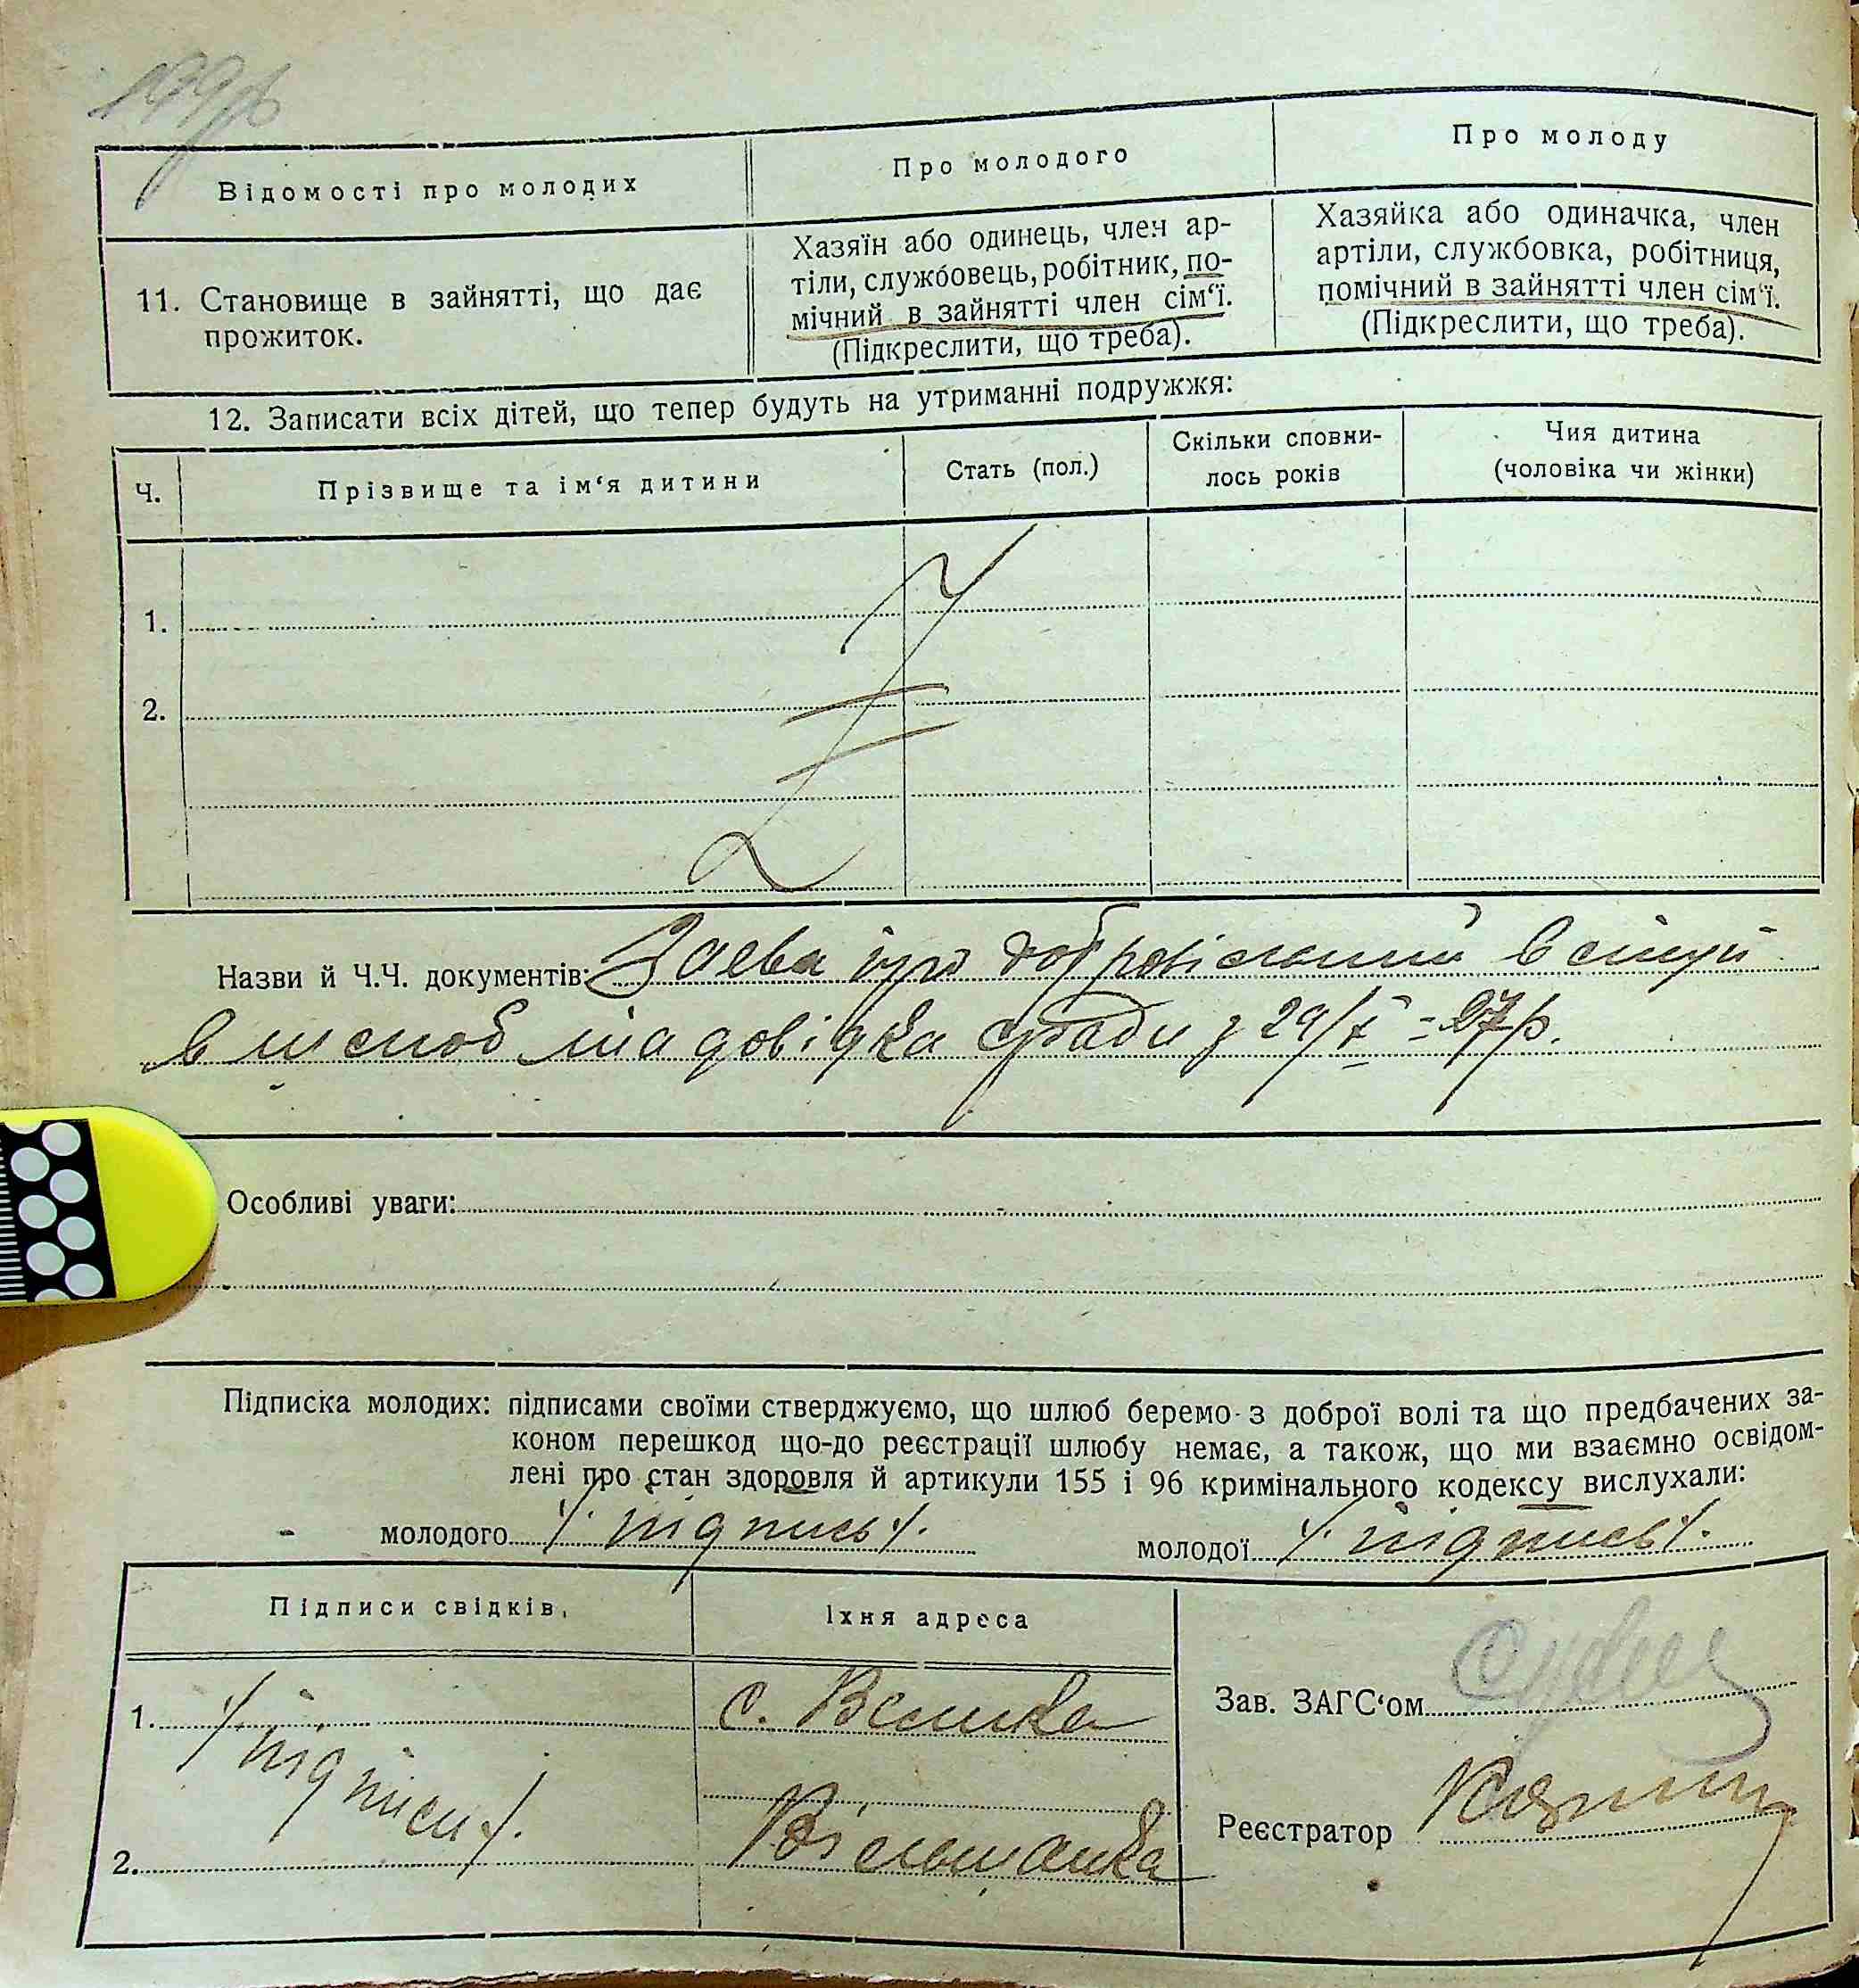 Відомості про молодих
Про молодого
Про молоду
11. Становище в зайнятті, що дає
прожиток.
Хазяїн або одинець, член ар-
тіли, службовець, робітник, по-
мічний в зайнятті член сім‘ї.
(Підкреслити, що треба).
Хазяйка або одиначка, член
артіли, службовка, робітниця,
помічний в зайнятті член сім‘ї.
(Підкреслити, що треба).
12. Записати всіх дітей, що тепер будуть на утриманні подружжя:
Ч.
Прізвище та ім‘я дитини
Стать (пол.)
Скільки сповни-
лось років
Чия дитина
(чоловіка чи жінки)
1.
2.
Назви й Ч.Ч. документів: Заева про добровільний вступ
в шлюб та довідка с/ради з 29/X - 27 р.
Особливі уваги:
Підписка молодих: підписами своїми стверджуємо, що шлюб беремо з доброї волі та що предбачених за-
коном перешкод що-до реєстрації шлюбу немає, а також, що ми взаємно освідом-
лені про стан здоровля й артикули 155 і 96 кримінального кодексу вислухали:
молодого /підпись/.
молодої /підпись/.
Підписи свідків.
Їхня адреса
1.
/підписи/.
2.
с. Велика
Вільшанка
Зав. ЗАГС‘ом
Реєстратор